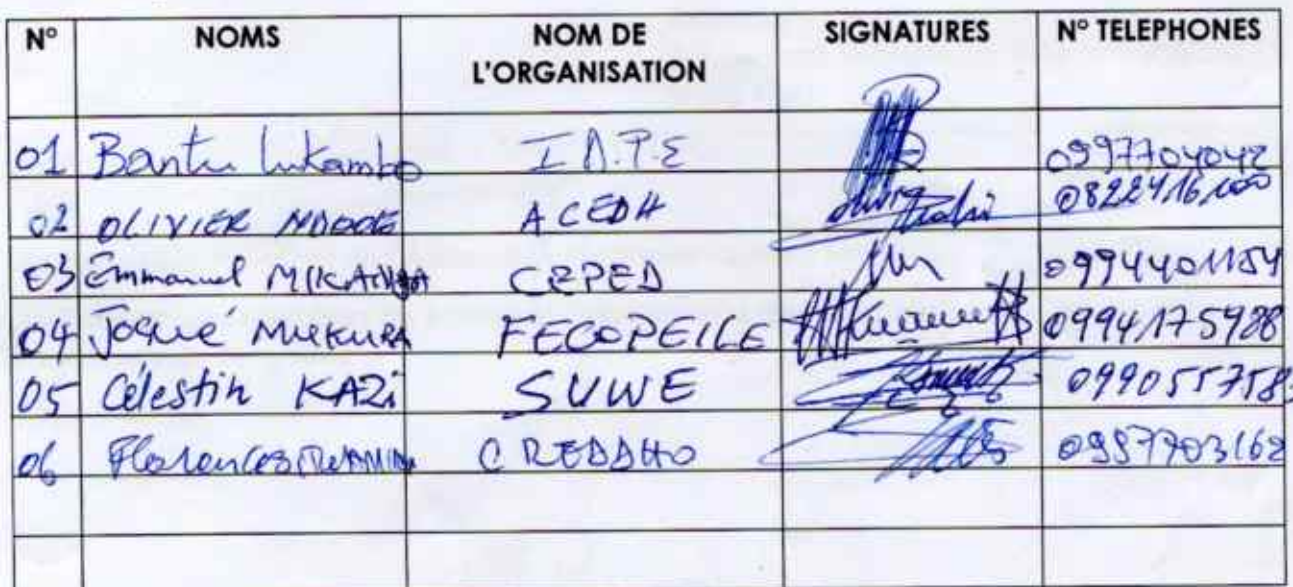 N° NOMS NOM DE L'ORGANISATION SIGNATURES N° TELEPHONES
01 Bantu Lukambo I.D.P.E 0997704042
02 OLIVIER NDOOLE ACEDH 0822416100
03 Emmanuel MIKANDA CEPED 0994401154
04 Josué MUKURA FECOPEILE 0994175928
05 Célestin KAZI SUWE 099055758
06 CREDDHO